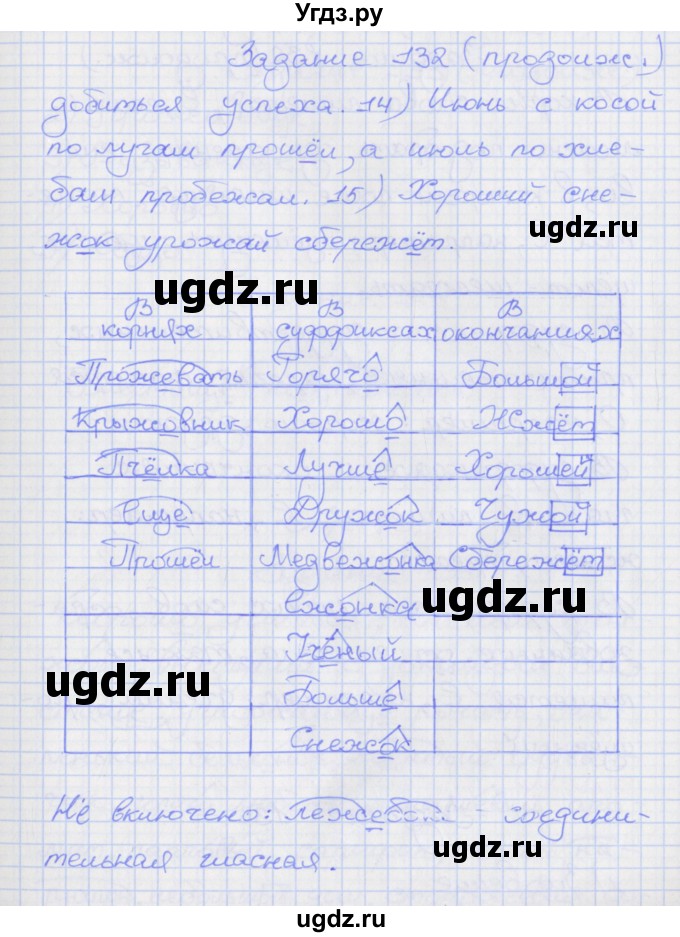 Угдз.ру
Задание 132 (продолж.)
добиться успеха. 14) Июнь с косой
по лугам прошёл, а июль по хле-
бам пробежал. 15) Хороший сне-
жок урожай сбережёт.
ugdz.ru
ugdz.ru
В корнях В суффиксах В окончаниях
Прожевать Горячо Большой
Крыжовник Хорошо Жжёт
Пчёлка Лучше Хорошей
Ещё Дружок Чужой
Прошёл Медвежонка Сбережёт
ежонка
ugdz.ru
Учёный
ugdz.ru
Больше
Снежок
Не включено: лежебока - соедини-
тельная гласная.
ugdz.ru
ugdz.ru